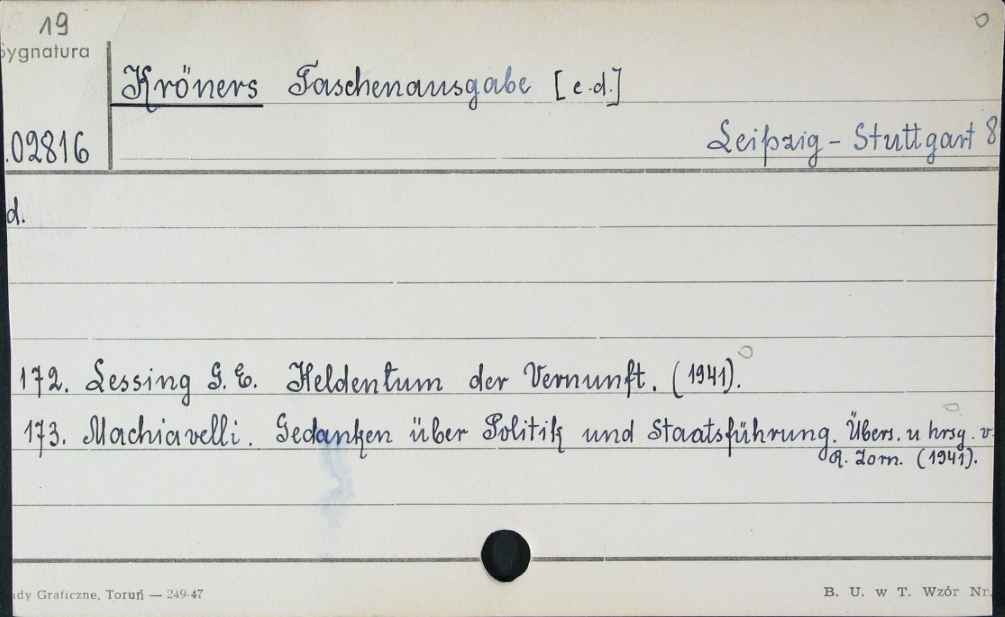 19
Sygnatura
Kröners Taschenausgabe [e.d.]
Leipzig - Stuttgart 8
.02816
d.
172. Lessing G.E. Heldentum der Vernunft. (1941).
173. Machiavelli. Gedanken über Politik und Staatsführung. Übers. u hrsg. v.
R. Zorn. (1941).
ady Graficzne, Toruń — 249-47
B. U. w T. Wzór Nr.